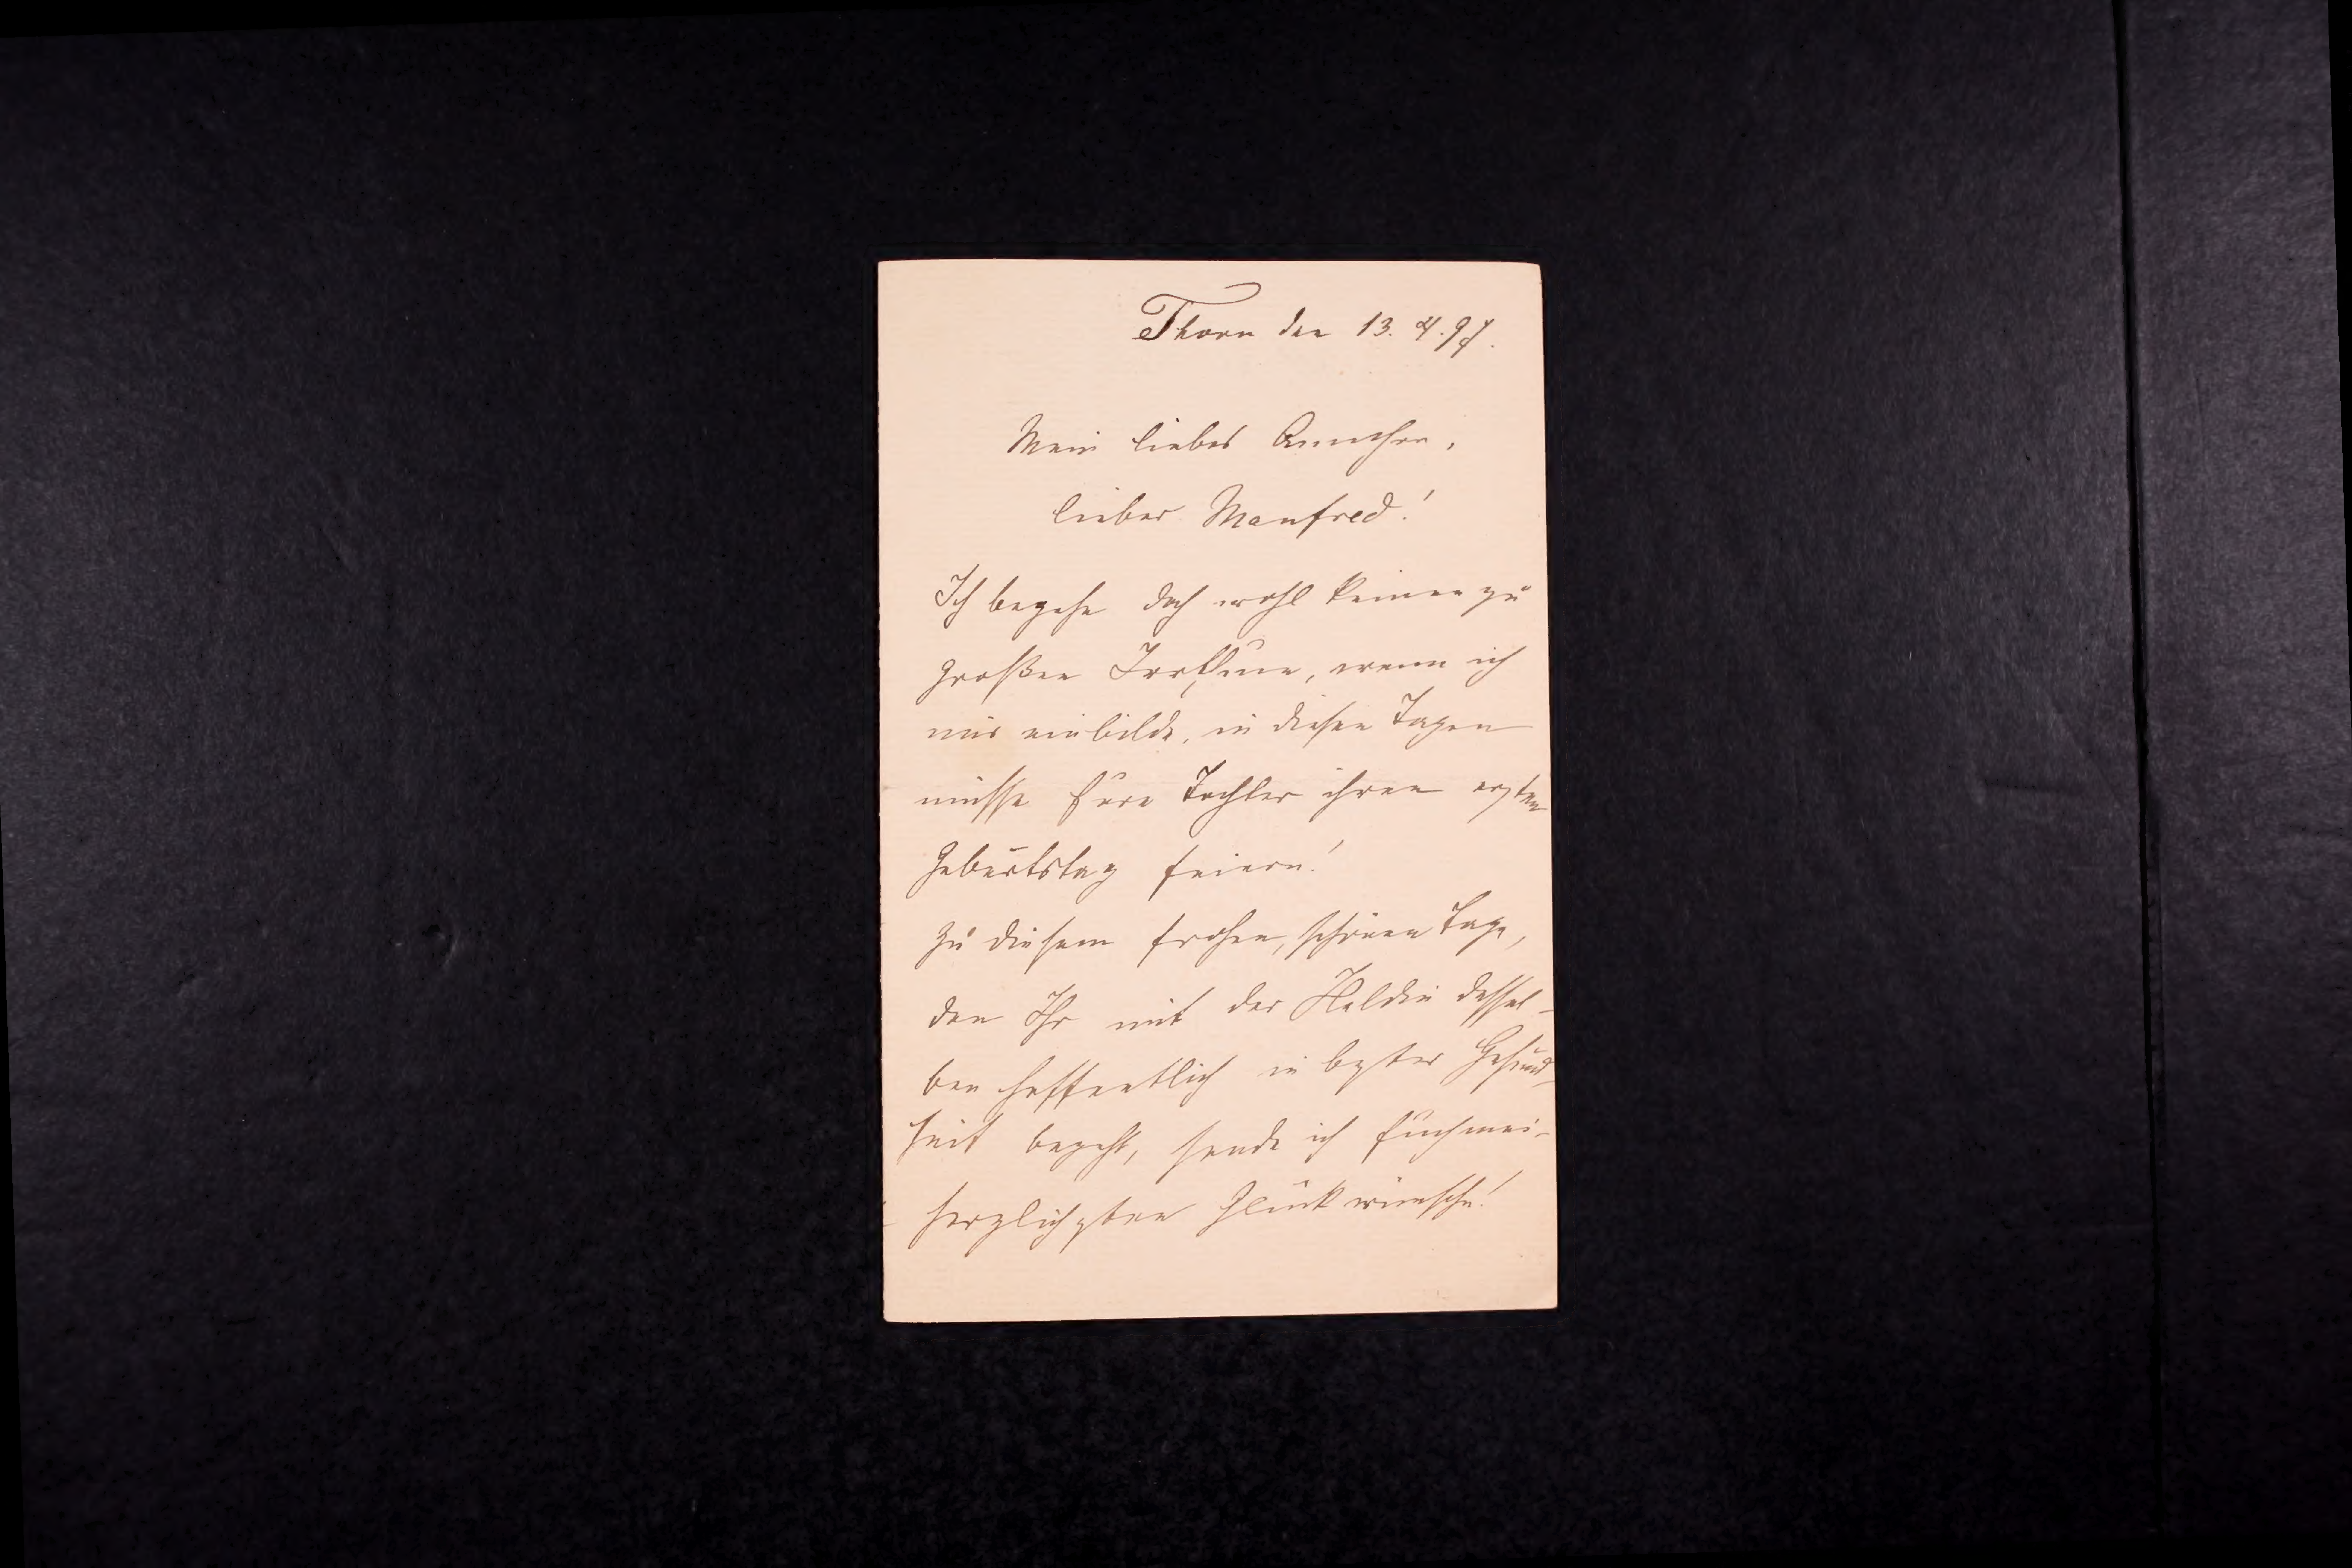 Thorn den 13. 4. 97.
Mein liebes Annchen,
lieber Manfred!
Ich begehe doch wohl keinen zu
großen Irrthum, wenn ich
mir einbilde, in diesen Tagen
müsse Eure Tochter ihren ersten
Geburtstag feiern!
Zu diesem frohen, schönen Tage,
den Ihr mit der Heldin dessel-
ben hoffentlich in bester Gesund-
heit begeht, sende ich Euch mei-
herzlichsten Glückwünsche!